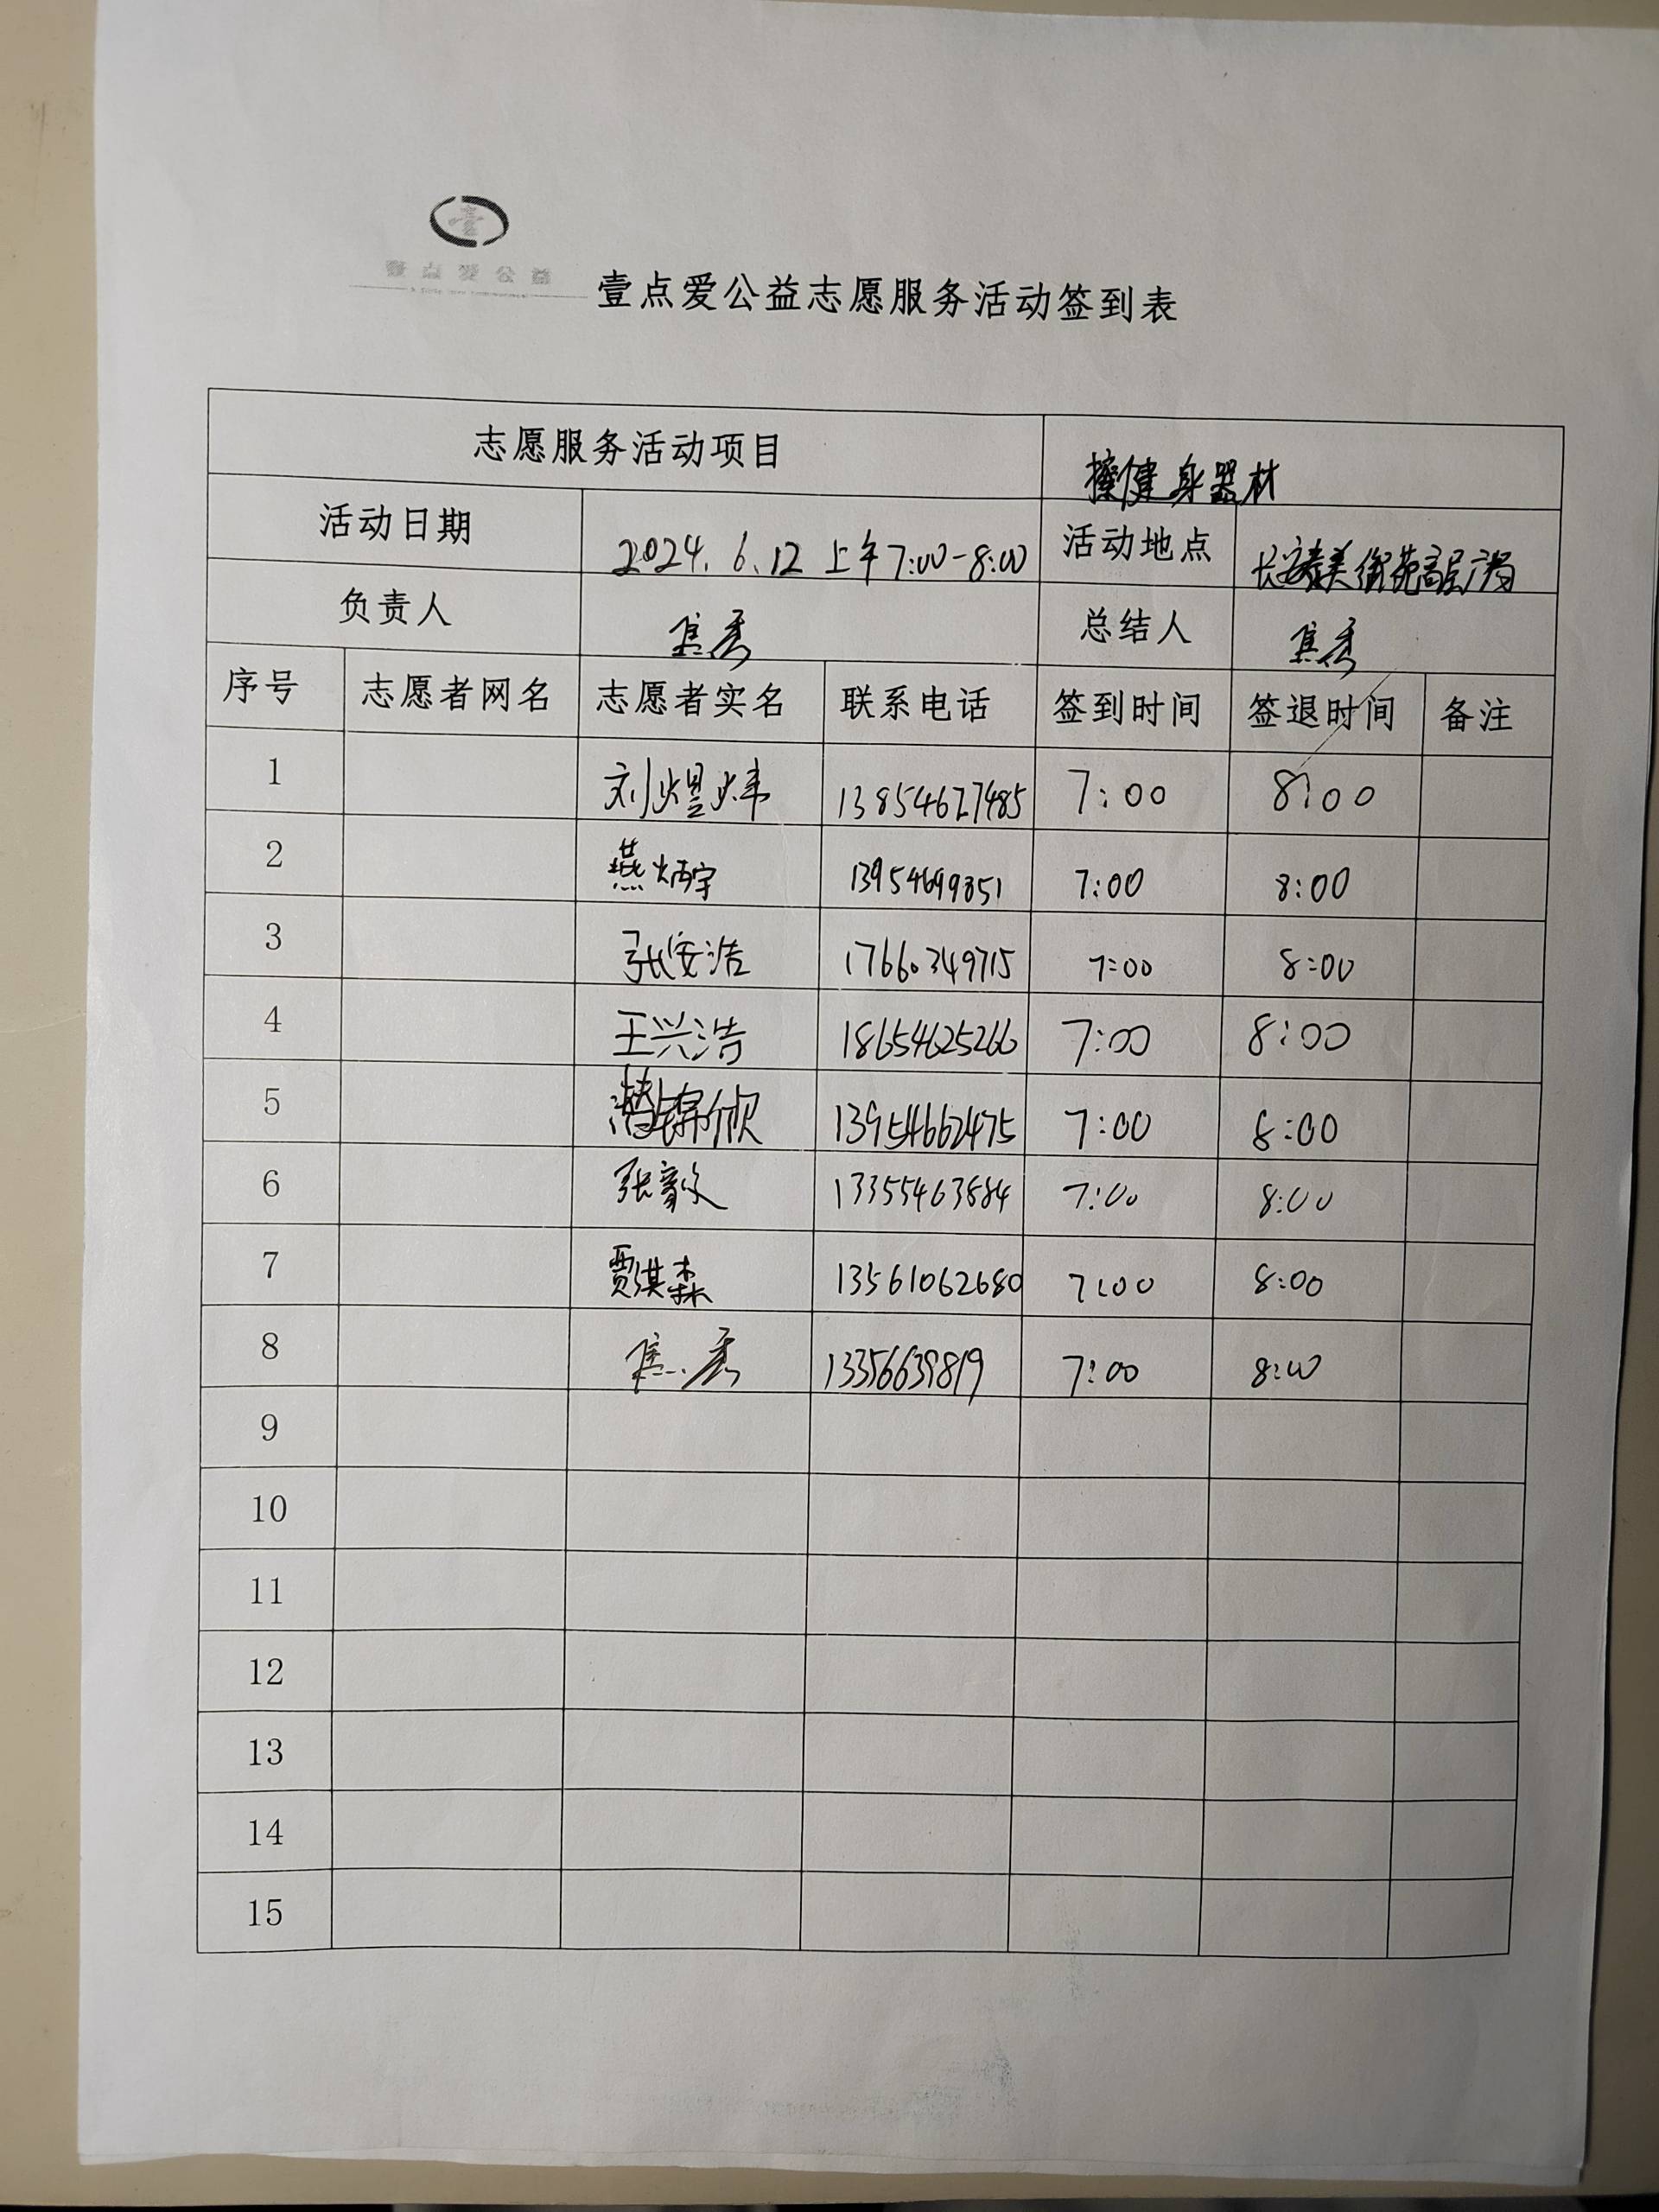 壹点爱公益
壹点爱公益志愿服务活动签到表
志愿服务活动项目 擦健身器材
活动日期 2024.6.12 上午7:00-8:00 活动地点 长安美
负责人 焦秀 总结人 焦秀
序号 志愿者网名 志愿者实名 联系电话 签到时间 签退时间 备注
1 刘煜炜 13854627485 7:00 8:00
2 燕炳宇 13954699851 7:00 8:00
3 张俊浩 17660349715 7:00 8:00
4 王兴浩 18654625266 7:00 8:00
5 13954662475 7:00 8:00
6 张 13355463884 7:00 8:00
7 贾淇森 13561062680 7:00 8:00
8 焦秀 13356639819 7:00 8:00
9
10
11
12
13
14
15